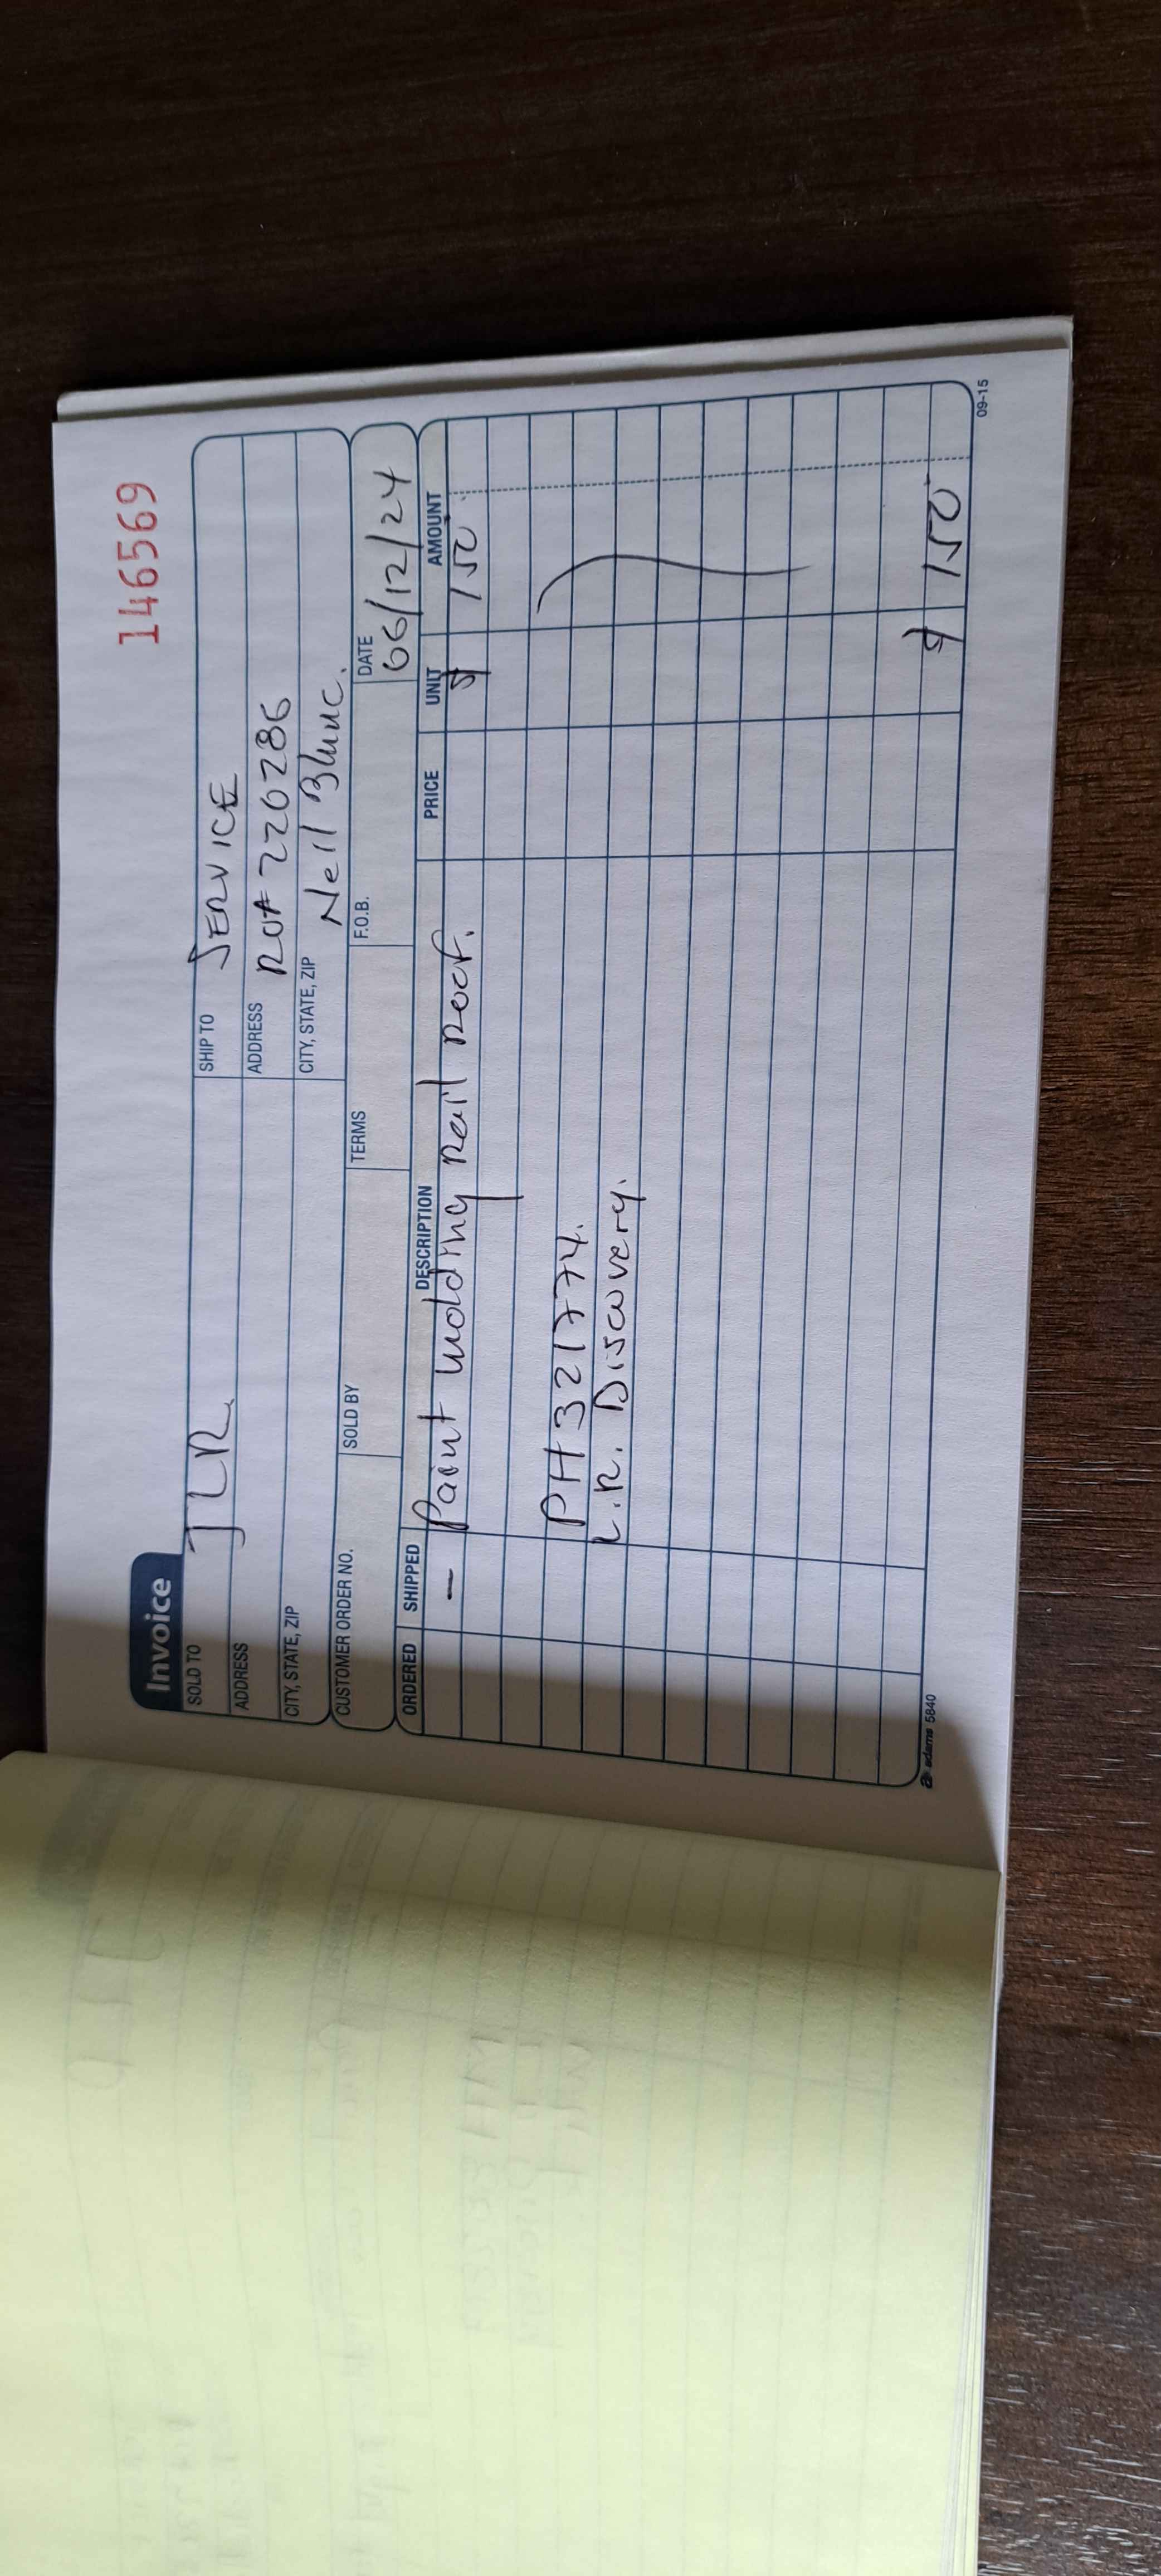 146569
Invoice
SOLD TO JLR.
SHIP TO SERVICE
ADDRESS
ADDRESS RO# 220286
CITY, STATE, ZIP
CITY, STATE, ZIP Neil
CUSTOMER ORDER NO. SOLD BY TERMS F.O.B. DATE 06/12/24
ORDERED SHIPPED DESCRIPTION PRICE UNIT AMOUNT
— Paint molding Rail Roof. $ 150.
PH321774.
L.R. Discovery.
$ 150
adams 5840
09-15